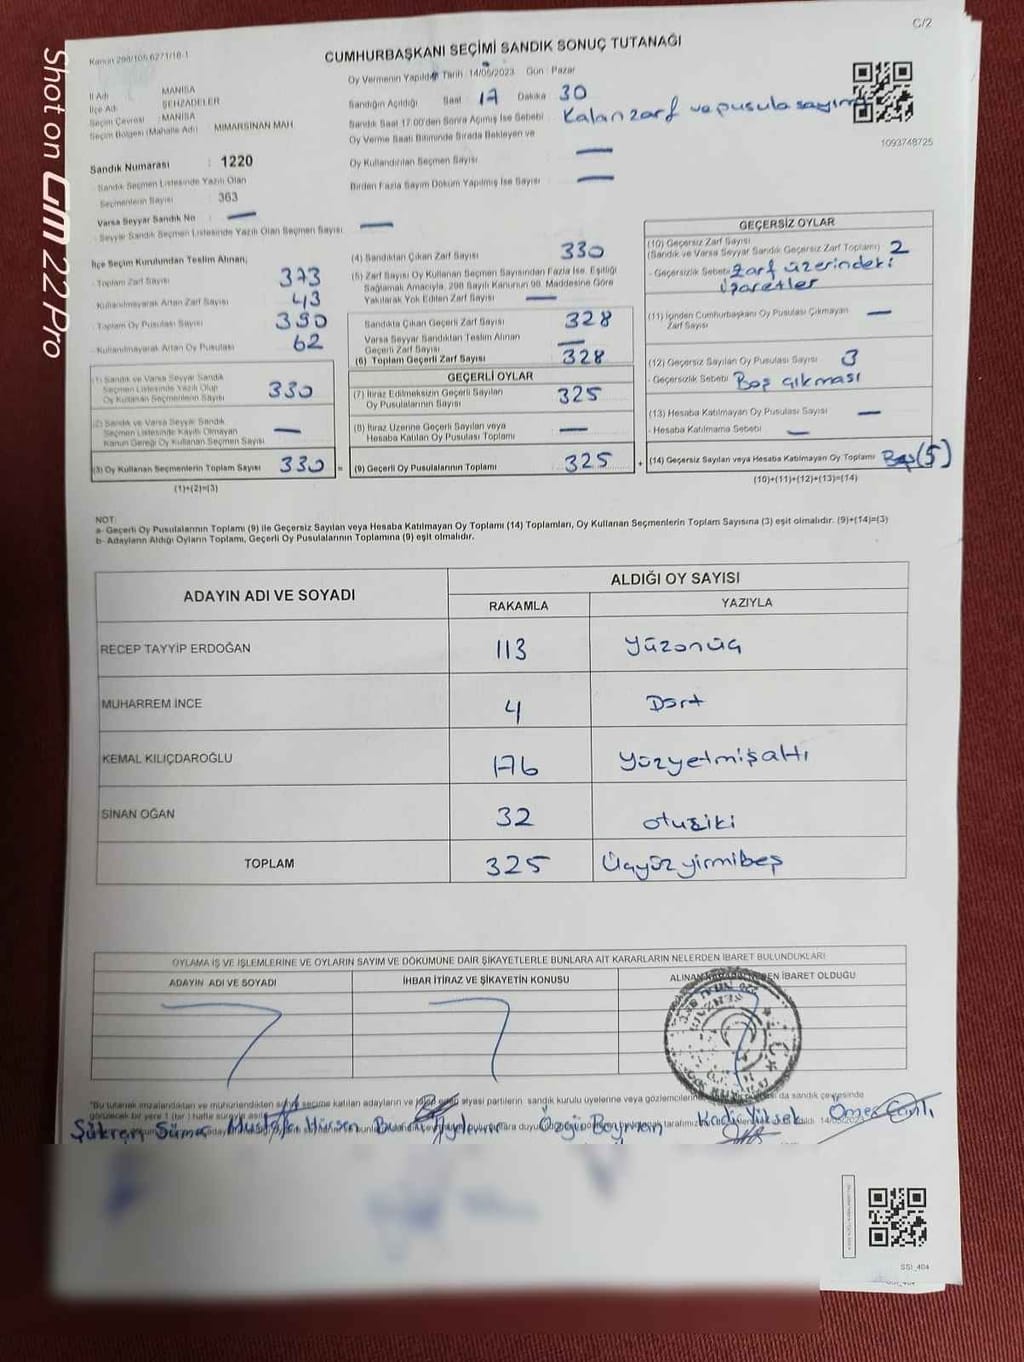 C/2
Kanun 298/105 6271/18-1
CUMHURBAŞKANI SEÇİMİ SANDIK SONUÇ TUTANAĞI
Oy Vermenin Yapıldığı Tarih 14/05/2023 Gün : Pazar
İl Adı : MANİSA
İlçe Adı : ŞEHZADELER
Seçim Çevresi : MANİSA
Seçim Bölgesi (Mahalle Adı) : MİMARSİNAN MAH.
Sandığın Açıldığı Saat 17 Dakika 30
Sandık Saat 17:00'den Sonra Açılmış İse Sebebi Kalan zarf ve pusula sayımı
Oy Verme Saati Bitiminde Sırada Bekleyen ve
Oy Kullandırılan Seçmen Sayısı —
Birden Fazla Sayım Döküm Yapılmış İse Sayısı —
1093748725
Sandık Numarası : 1220
Sandık Seçmen Listesinde Yazılı Olan
Seçmenlerin Sayısı : 363
Varsa Seyyar Sandık No : —
Seyyar Sandık Seçmen Listesinde Yazılı Olan Seçmen Sayısı: —
İlçe Seçim Kurulundan Teslim Alınan;
- Toplam Zarf Sayısı 373
- Kullanılmayarak Artan Zarf Sayısı 43
- Toplam Oy Pusulası Sayısı 390
- Kullanılmayarak Artan Oy Pusulası 62
(1) Sandık ve Varsa Seyyar Sandık
Seçmen Listesinde Yazılı Olup
Oy Kullanan Seçmenlerin Sayısı 330
(2) Sandık ve Varsa Seyyar Sandık
Seçmen Listesinde Kayıtlı Olmayan
Kanun Gereği Oy Kullanan Seçmen Sayısı —
(3) Oy Kullanan Seçmenlerin Toplam Sayısı 330 =
(1)+(2)=(3)
(4) Sandıktan Çıkan Zarf Sayısı 330
(5) Zarf Sayısı Oy Kullanan Seçmen Sayısından Fazla İse, Eşitliği
Sağlamak Amacıyla, 298 Sayılı Kanunun 98. Maddesine Göre
Yakılarak Yok Edilen Zarf Sayısı —
Sandıkta Çıkan Geçerli Zarf Sayısı 328
Varsa Seyyar Sandıktan Teslim Alınan
Geçerli Zarf Sayısı —
(6) Toplam Geçerli Zarf Sayısı 328
GEÇERLİ OYLAR
(7) İtiraz Edilmeksizin Geçerli Sayılan
Oy Pusulalarının Sayısı 325
(8) İtiraz Üzerine Geçerli Sayılan veya
Hesaba Katılan Oy Pusulası Toplamı —
(9) Geçerli Oy Pusulalarının Toplamı 325 +
GEÇERSİZ OYLAR
(10) Geçersiz Zarf Sayısı
(Sandık ve Varsa Seyyar Sandık Geçersiz Zarf Toplamı) 2
- Geçersizlik Sebebi Zarf üzerindeki
işaretler
(11) İçinden Cumhurbaşkanı Oy Pusulası Çıkmayan
Zarf Sayısı —
(12) Geçersiz Sayılan Oy Pusulası Sayısı 3
- Geçersizlik Sebebi Boş çıkması
(13) Hesaba Katılmayan Oy Pusulası Sayısı —
- Hesaba Katılmama Sebebi —
(14) Geçersiz Sayılan veya Hesaba Katılmayan Oy Toplamı Beş (5)
(10)+(11)+(12)+(13)=(14)
NOT:
a- Geçerli Oy Pusulalarının Toplamı (9) ile Geçersiz Sayılan veya Hesaba Katılmayan Oy Toplamı (14) Toplamları, Oy Kullanan Seçmenlerin Toplam Sayısına (3) eşit olmalıdır. (9)+(14)=(3)
b- Adayların Aldığı Oyların Toplamı, Geçerli Oy Pusulalarının Toplamına (9) eşit olmalıdır.
ADAYIN ADI VE SOYADI
ALDIĞI OY SAYISI
RAKAMLA YAZIYLA
RECEP TAYYİP ERDOĞAN 113 Yüzonüç
MUHARREM İNCE 4 Dört
KEMAL KILIÇDAROĞLU 176 Yüzyetmişaltı
SİNAN OĞAN 32 otuziki
TOPLAM 325 Üçyüzyirmibeş
OYLAMA İŞ VE İŞLEMLERİNE VE OYLARIN SAYIM VE DÖKÜMÜNE DAİR ŞİKAYETLERLE BUNLARA AİT KARARLARIN NELERDEN İBARET BULUNDUKLARI
ADAYIN ADI VE SOYADI
İHBAR İTİRAZ VE ŞİKAYETİN KONUSU
ALINAN İBARET OLDUĞU
Özgür
Ömer
SSI_404
Shot on GM 22 Pro